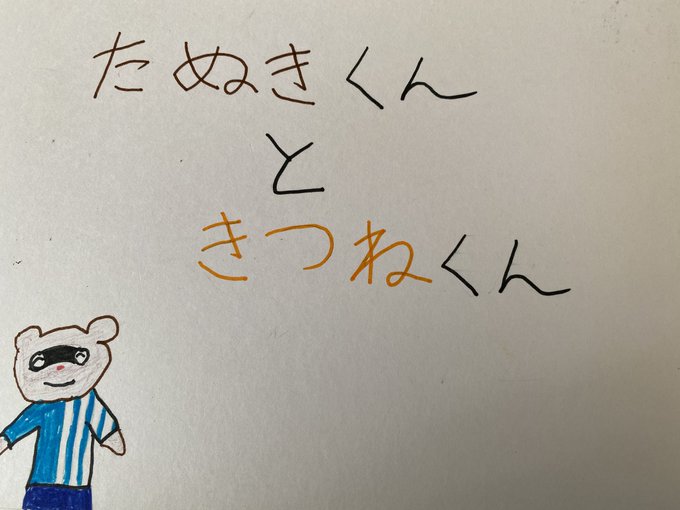 たぬきくん
と
きつねくん